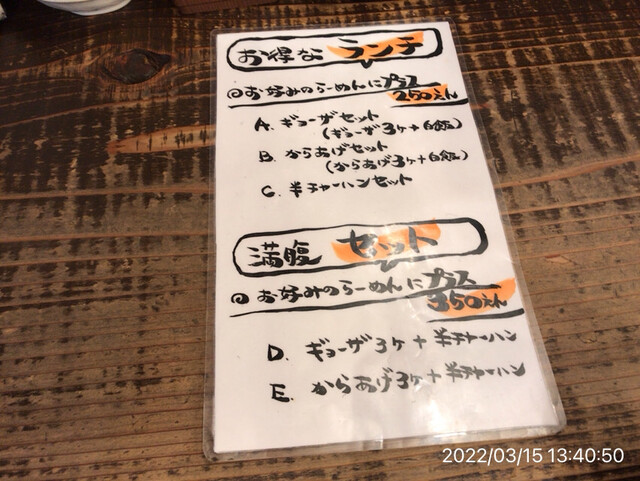 お得な ランチ
◎お好みのらーめんにプラス
250えん
A. ギョーザセット
(ギョーザ3ケ+白飯)
B. からあげセット
(からあげ3ケ+白飯)
C. 半チャーハンセット
満腹 セット
◎お好みのらーめんにプラス
350えん
D. ギョーザ3ケ+半チャーハン
E. からあげ3ケ+半チャーハン
2022/03/15 13:40:50